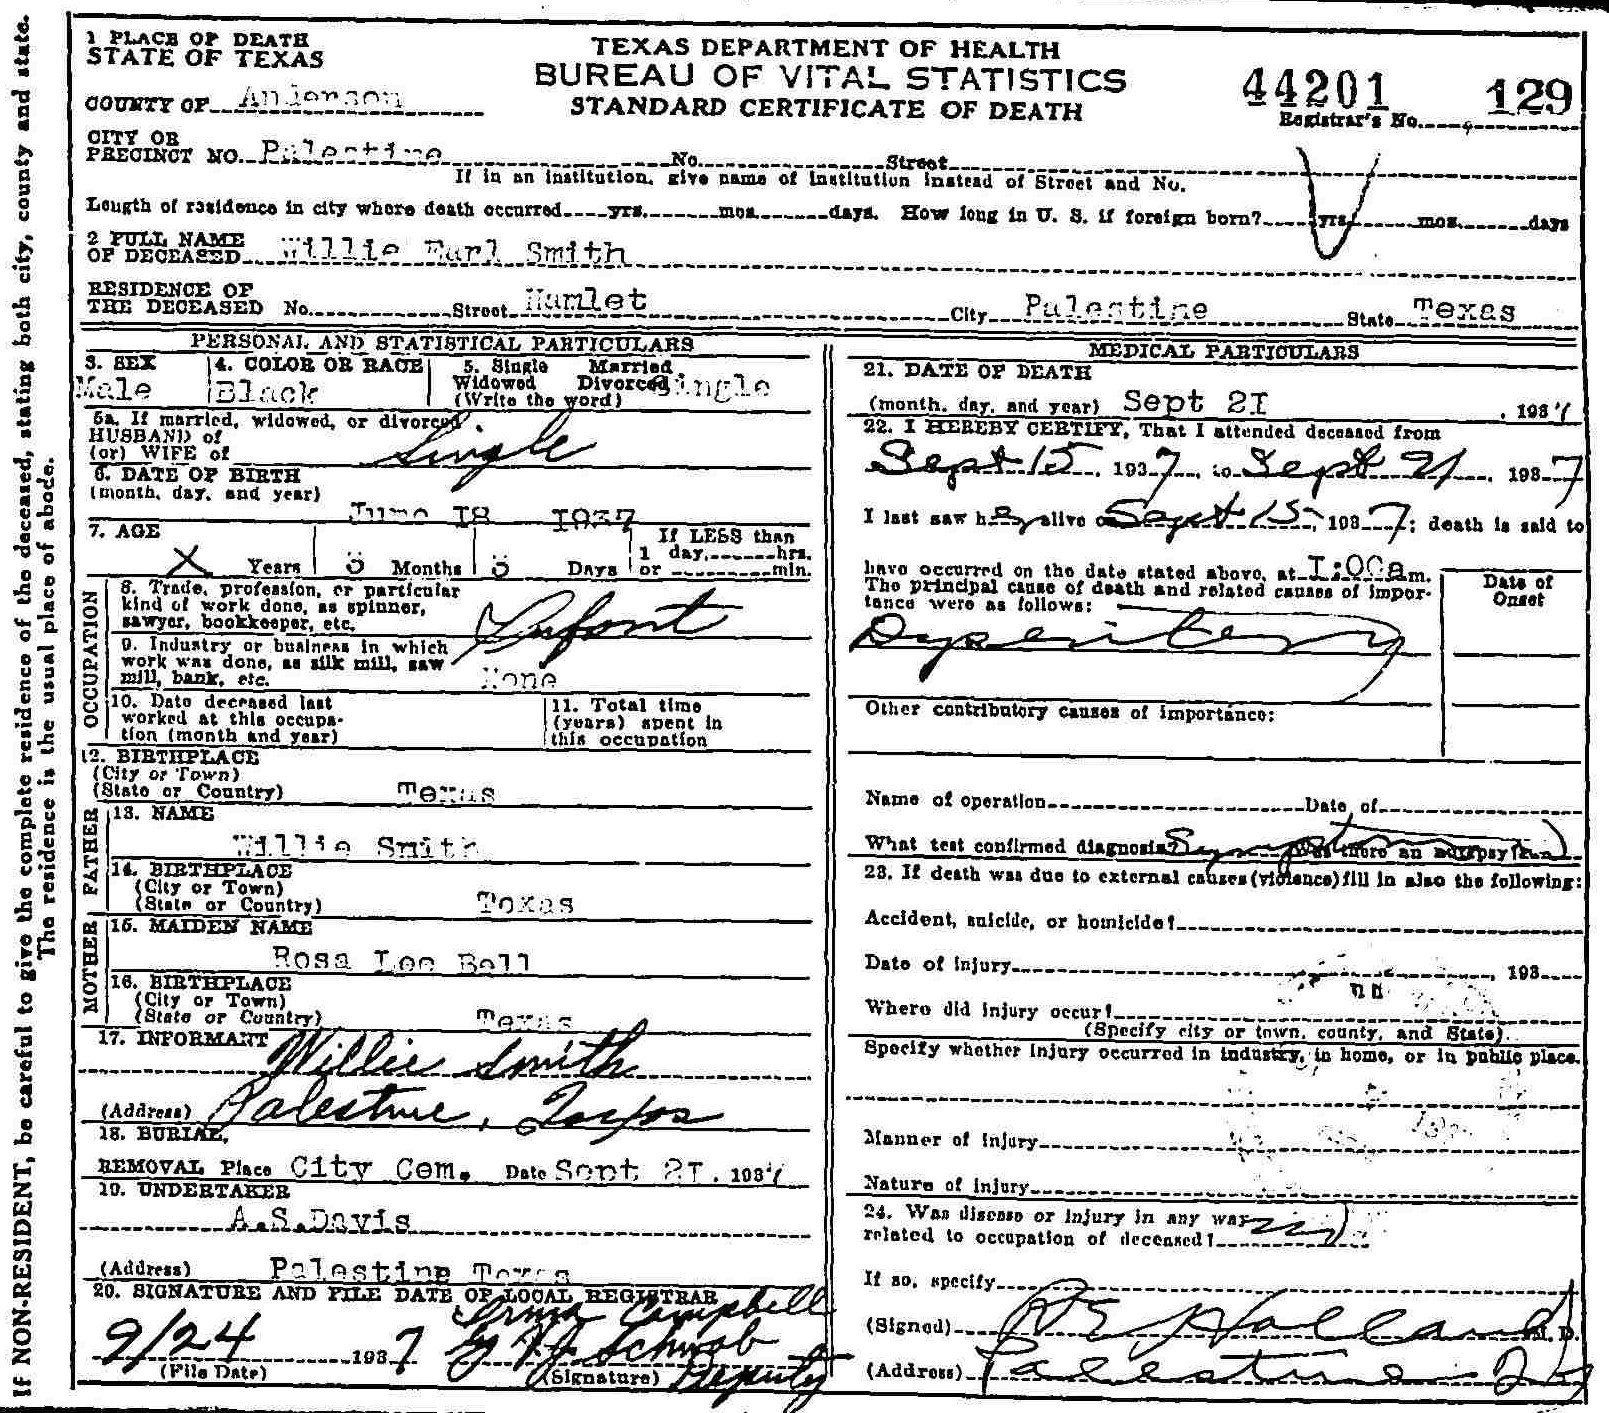 1 PLACE OF DEATH
STATE OF TEXAS
COUNTY OF Anderson
TEXAS DEPARTMENT OF HEALTH
BUREAU OF VITAL STATISTICS
STANDARD CERTIFICATE OF DEATH
44201 129
Registrar's No.
CITY OR
PRECINCT NO. Palestine No. Street
If in an institution, give name of institution instead of Street and No.
Length of residence in city where death occurred yrs. mos. days. How long in U. S. if foreign born? yrs. mos. days
2 FULL NAME
OF DECEASED Willie Earl Smith
RESIDENCE OF
THE DECEASED No. Street Hamlet City Palestine State Texas
PERSONAL AND STATISTICAL PARTICULARS
3. SEX 4. COLOR OR RACE 5. Single Married
Widowed Divorced
Male Black (Write the word) Single
5a. If married, widowed, or divorced
HUSBAND of
(or) WIFE of Single
6. DATE OF BIRTH
(month, day, and year)
June I8 I937
7. AGE If LESS than
X Years 3 Months 3 Days 1 day, hrs.
or min.
OCCUPATION
8. Trade, profession, or particular
kind of work done, as spinner,
sawyer, bookkeeper, etc. Infant
9. Industry or business in which
work was done, as silk mill, saw
mill, bank, etc. None
10. Date deceased last
worked at this occupa-
tion (month and year)
11. Total time
(years) spent in
this occupation
12. BIRTHPLACE
(City or Town)
(State or Country) Texas
FATHER
13. NAME
Willie Smith
14. BIRTHPLACE
(City or Town)
(State or Country) Texas
MOTHER
15. MAIDEN NAME
Rosa Lee Bell
16. BIRTHPLACE
(City or Town)
(State or Country) Texas
17. INFORMANT Willie Smith
(Address) Palestine, Texas
18. BURIAL,
REMOVAL Place City Cem. Date Sept 2I, 1937
19. UNDERTAKER
A.S.Davis
(Address) Palestine Texas
20. SIGNATURE AND FILE DATE OF LOCAL REGISTRAR
Irma Campbell
9/24 1937 Schwob
(File Date) (Signature) Deputy
MEDICAL PARTICULARS
21. DATE OF DEATH
(month, day, and year) Sept 2I, 1937
22. I HEREBY CERTIFY, That I attended deceased from
Sept 15, 1937, to Sept 21, 1937
I last saw h alive on Sept 15, 1937; death is said to
have occurred on the date stated above, at I:00a m.
The principal cause of death and related causes of impor-
tance were as follows:
Date of
Onset
Dysentery
Other contributory causes of importance:
Name of operation Date of
What test confirmed diagnosis? Symptoms Was there an autopsy?
23. If death was due to external causes (violence) fill in also the following:
Accident, suicide, or homicide?
Date of injury , 193
Where did injury occur?
(Specify city or town, county, and State)
Specify whether injury occurred in industry, in home, or in public place.
Manner of injury
Nature of injury
24. Was disease or injury in any way
related to occupation of deceased? no
If so, specify
(Signed) Holland M. D.
(Address) Palestine
If NON-RESIDENT, be careful to give the complete residence of the deceased, stating both city, county and state.
The residence is the usual place of abode.